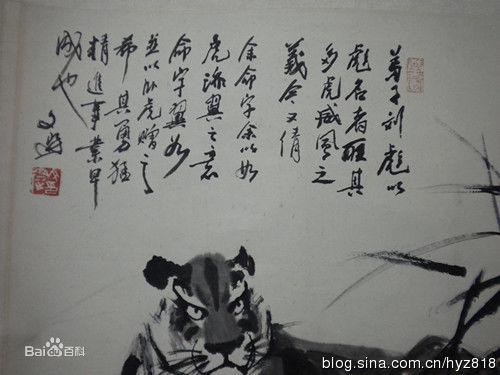 弟子刘彪以
彪名者取其
多虎威风之
義今又倩
余命字余以如
虎添翼之意
命字翼如
並以卧虎赠之
希其勇猛
精進事業早
成也
Bai百科
blog.sina.com.cn/hyz818